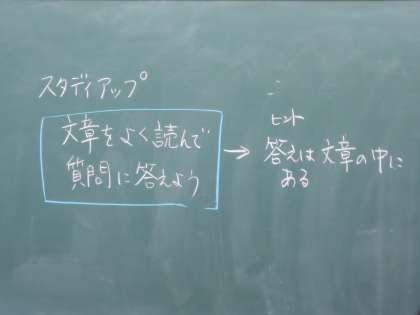 スタディアップ
文章をよく読んで
質問に答えよう
→
ヒント
答えは文章の中に
ある